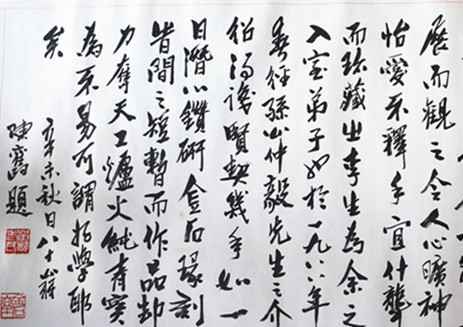 展而觀之令人心曠神
怡愛不釋手宜什襲
而珍藏也李生為余之
入室弟子於一九八六年
春經孫公仲毅先生之介
紹得識賢契幾年如一
日潛心鑽研金石篆刻
時間之短暫而作品却
力奪天工爐火純青實
為不易可謂好學耶
矣
辛未秋日八十
陳題